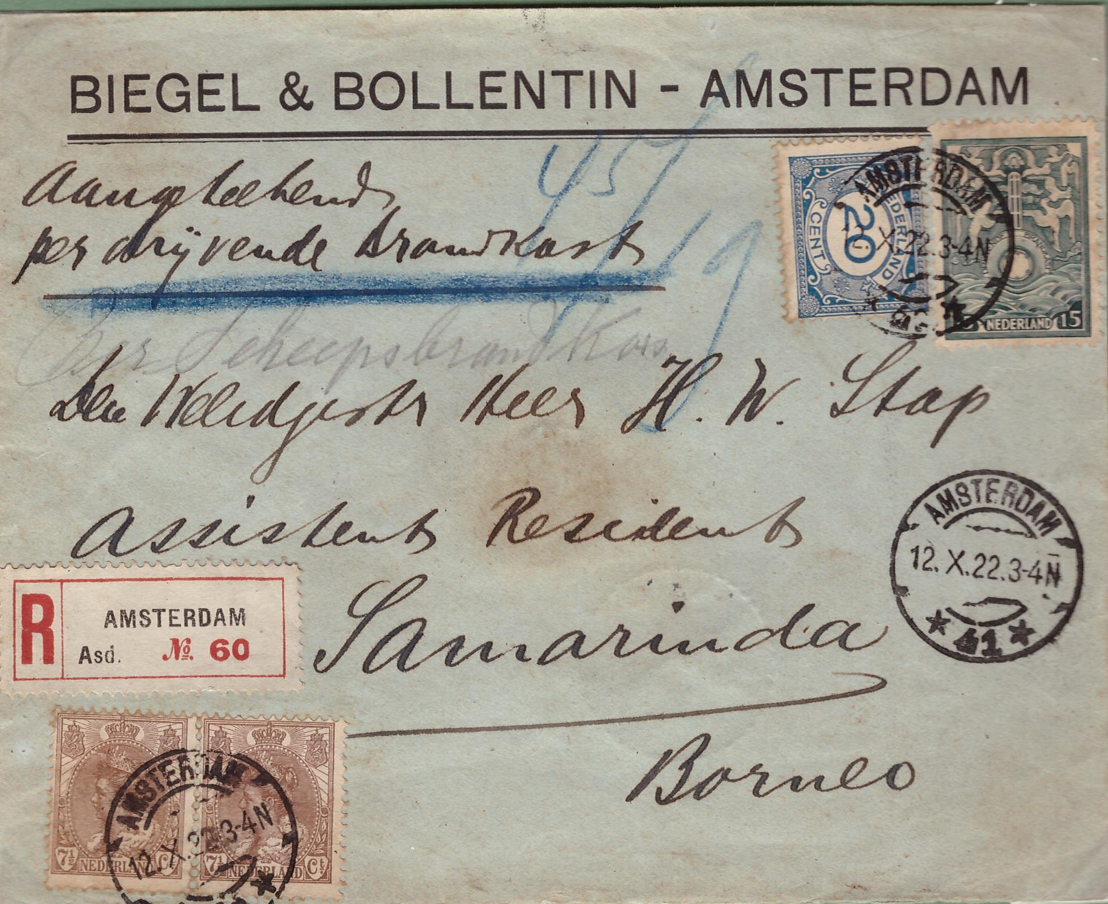 BIEGEL & BOLLENTIN - AMSTERDAM
Aangeteekend
per drijvende brandkast
45/
19
Per Scheepsbrandkas
Den Weledgestr Heer H. W. Stap
Assistent Resident
Samarinda
Borneo
NEDERLAND
20
CENT
NEDERLAND 15
AMSTERDAM
X.22.3-4N
AMSTERDAM
12.X.22.3-4N
* 41 *
R
AMSTERDAM
Asd. No. 60
7½ NEDERLAND Ct
7½ NEDERLAND Ct
AMSTERDAM
12.X.22 3-4N